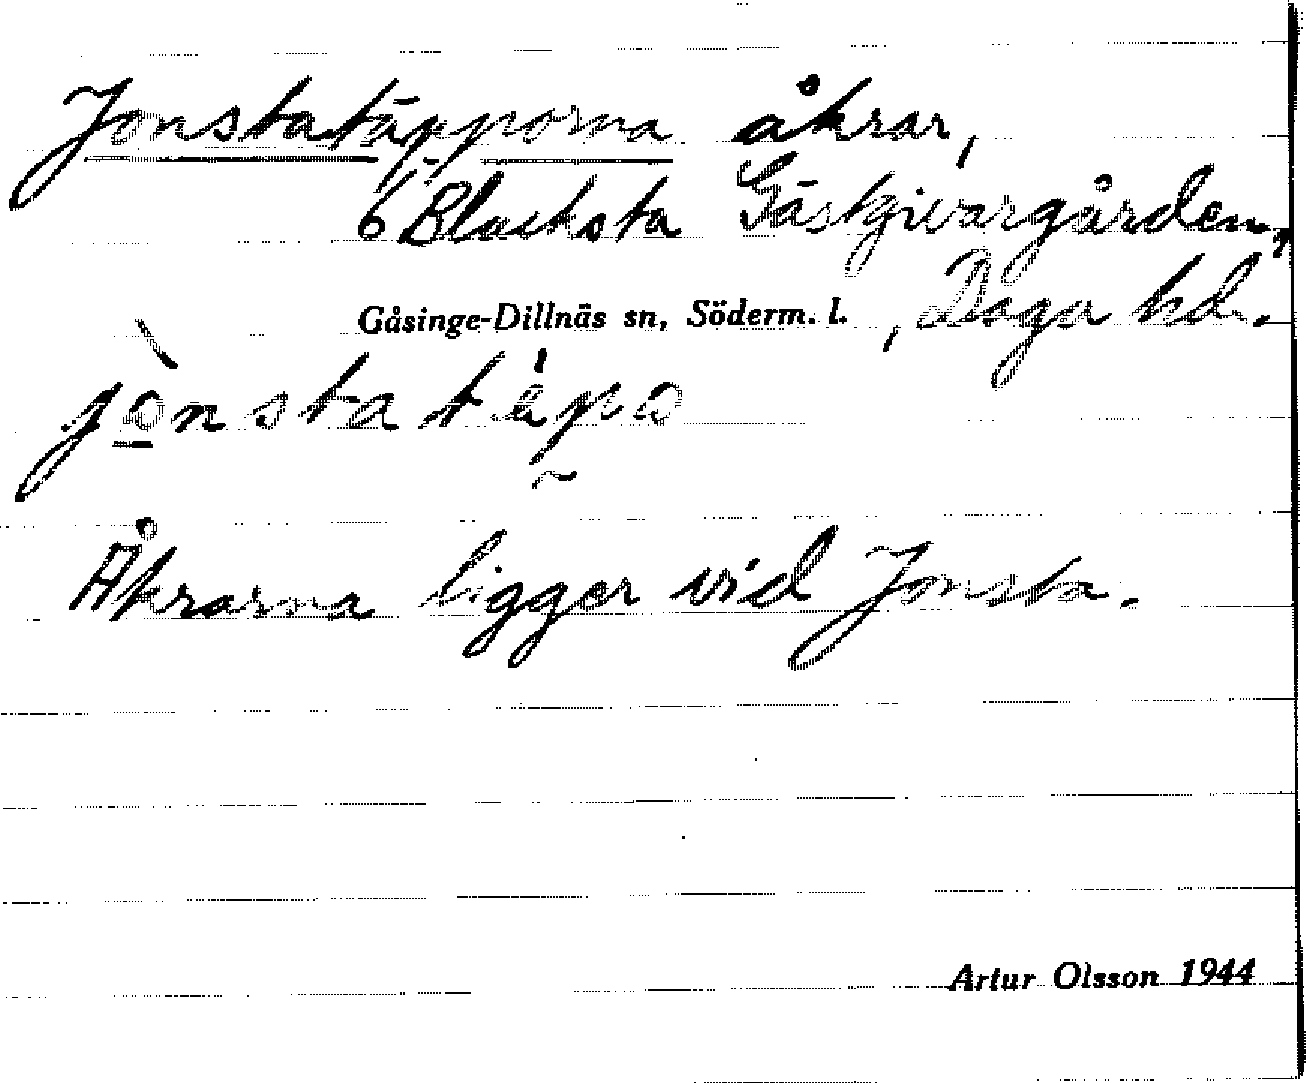 Jonstatäpporna åkrar,
6 Blacksta Gästgivargården,
Gåsinge-Dillnäs sn, Söderm. l. , Daga hd.
jònstatä́pɑ
Åkrarna ligger vid Jonsta.
Artur Olsson 1944